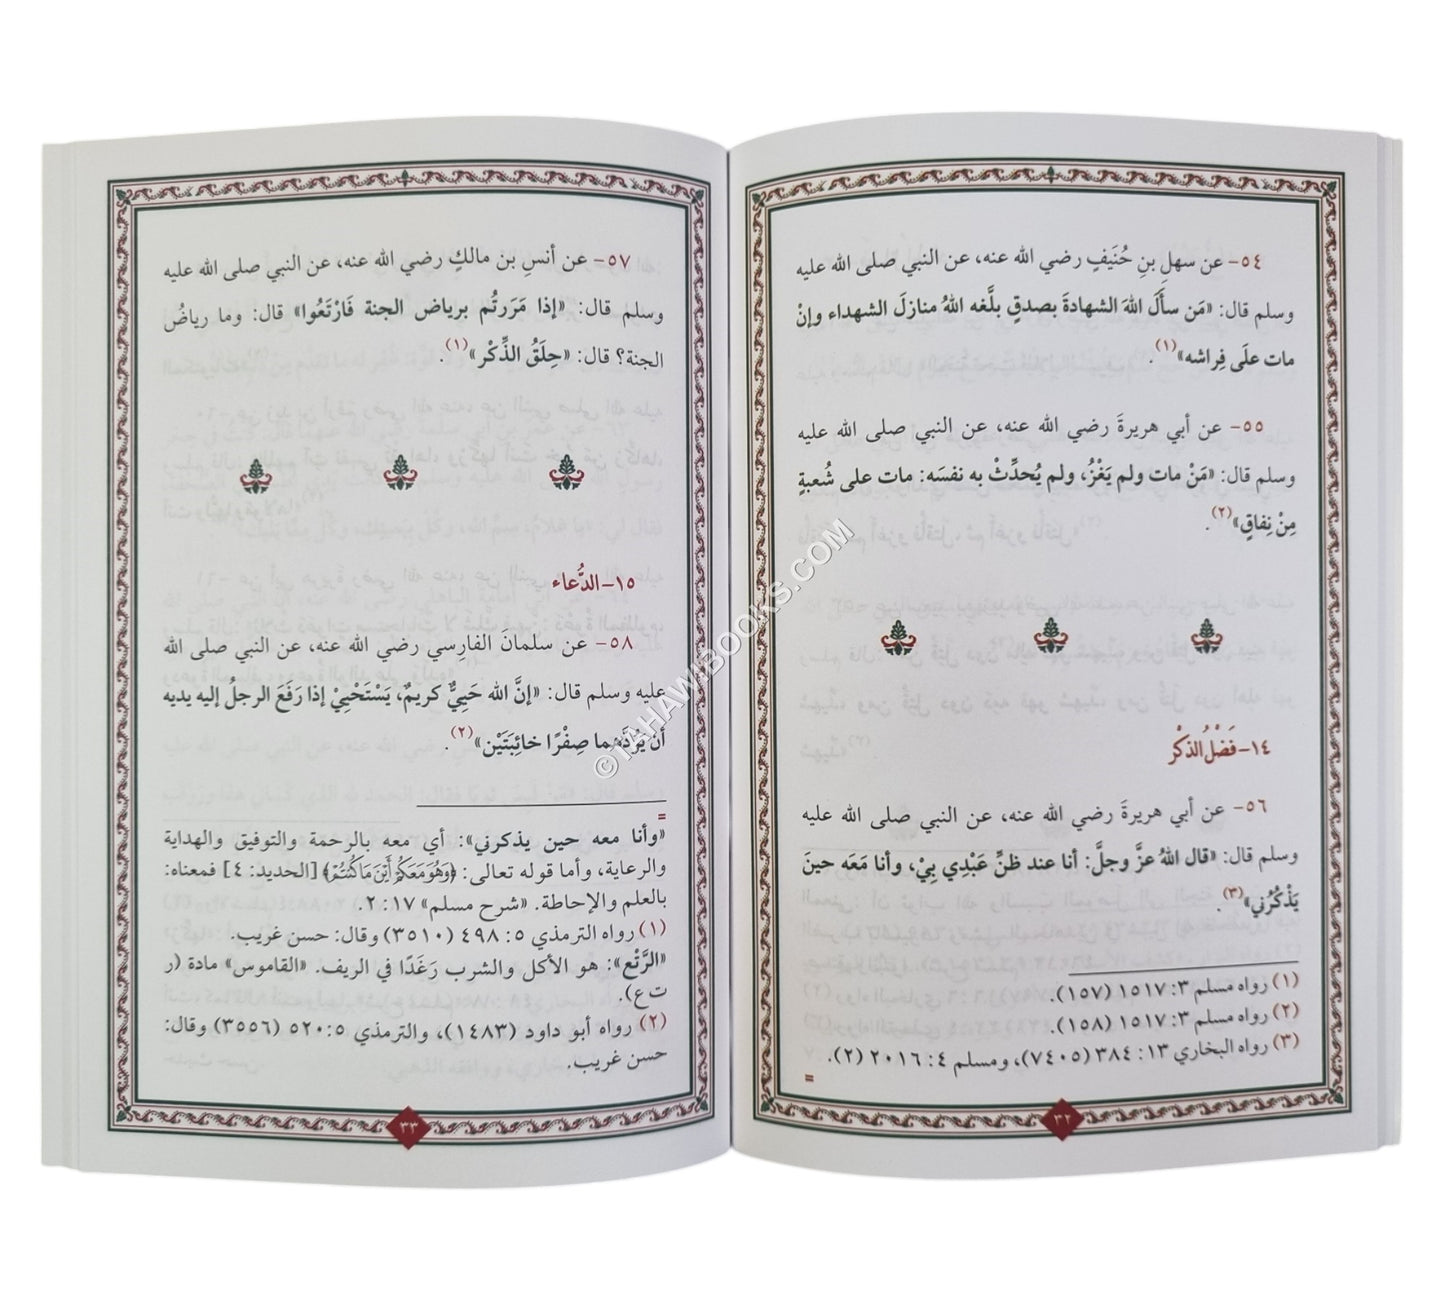 ٥٤- عن سهلِ بنِ حُنَيفٍ رضي الله عنه، عن النبي صلى الله عليه
وسلم قال: «مَن سأَلَ اللهَ الشهادةَ بصدقٍ بلَّغه اللهُ منازلَ الشهداء وإنْ
مات علَى فِراشه»(١).
٥٥- عن أبي هريرةَ رضي الله عنه، عن النبي صلى الله عليه
وسلم قال: «مَنْ مات ولم يَغْزُ، ولم يُحدِّثْ به نفسَه: مات على شُعبةٍ
مِنْ نِفاقٍ»(٢).
١٤- فَضْلُ الذكْر
٥٦- عن أبي هريرةَ رضي الله عنه، عن النبي صلى الله عليه
وسلم قال: «قال اللهُ عزَّ وجلَّ: أنا عند ظنِّ عَبْدِي بِيْ، وأنا مَعَه حينَ
يَذْكُرُني»(٣).
(١) رواه مسلم ٣: ١٥١٧ (١٥٧).
(٢) رواه مسلم ٣: ١٥١٧ (١٥٨).
(٣) رواه البخاري ١٣: ٣٨٤ (٧٤٠٥)، ومسلم ٤: ٢٠١٦ (٢).
=
٣٢
٥٧- عن أنسِ بن مالكٍ رضي الله عنه، عن النبي صلى الله عليه
وسلم قال: «إذا مَرَرتُم برياض الجنة فَارْتَعُوا» قال: وما رياضُ
الجنة؟ قال: «حِلَقُ الذِّكْر»(١).
١٥- الدُّعاء
٥٨- عن سلمانَ الفارِسي رضي الله عنه، عن النبي صلى الله
عليه وسلم قال: «إنَّ الله حَيِيٌّ كريمٌ، يَسْتَحْيِيْ إذا رَفَعَ الرجلُ إليه يديه
أن يَرُدَّهما صِفْرًا خائِبَتَيْن»(٢).
=
«وأنا معه حين يذكرني»: أي معه بالرحمة والتوفيق والهداية
والرعاية، وأما قوله تعالى: ﴿وَهُوَ مَعَكُمْ أَيْنَ مَا كُنْتُمْ﴾ [الحديد: ٤] فمعناه:
بالعلم والإحاطة. «شرح مسلم» ١٧: ٢.
(١) رواه الترمذي ٥: ٤٩٨ (٣٥١٠) وقال: حسن غريب.
«الرَّتْع»: هو الأكل والشرب رَغَدًا في الريف. «القاموس» مادة (ر
ت ع).
(٢) رواه أبو داود (١٤٨٣)، والترمذي ٥: ٥٢٠ (٣٥٥٦) وقال:
حسن غريب.
٣٣
©TAHAWIBOOKS.COM